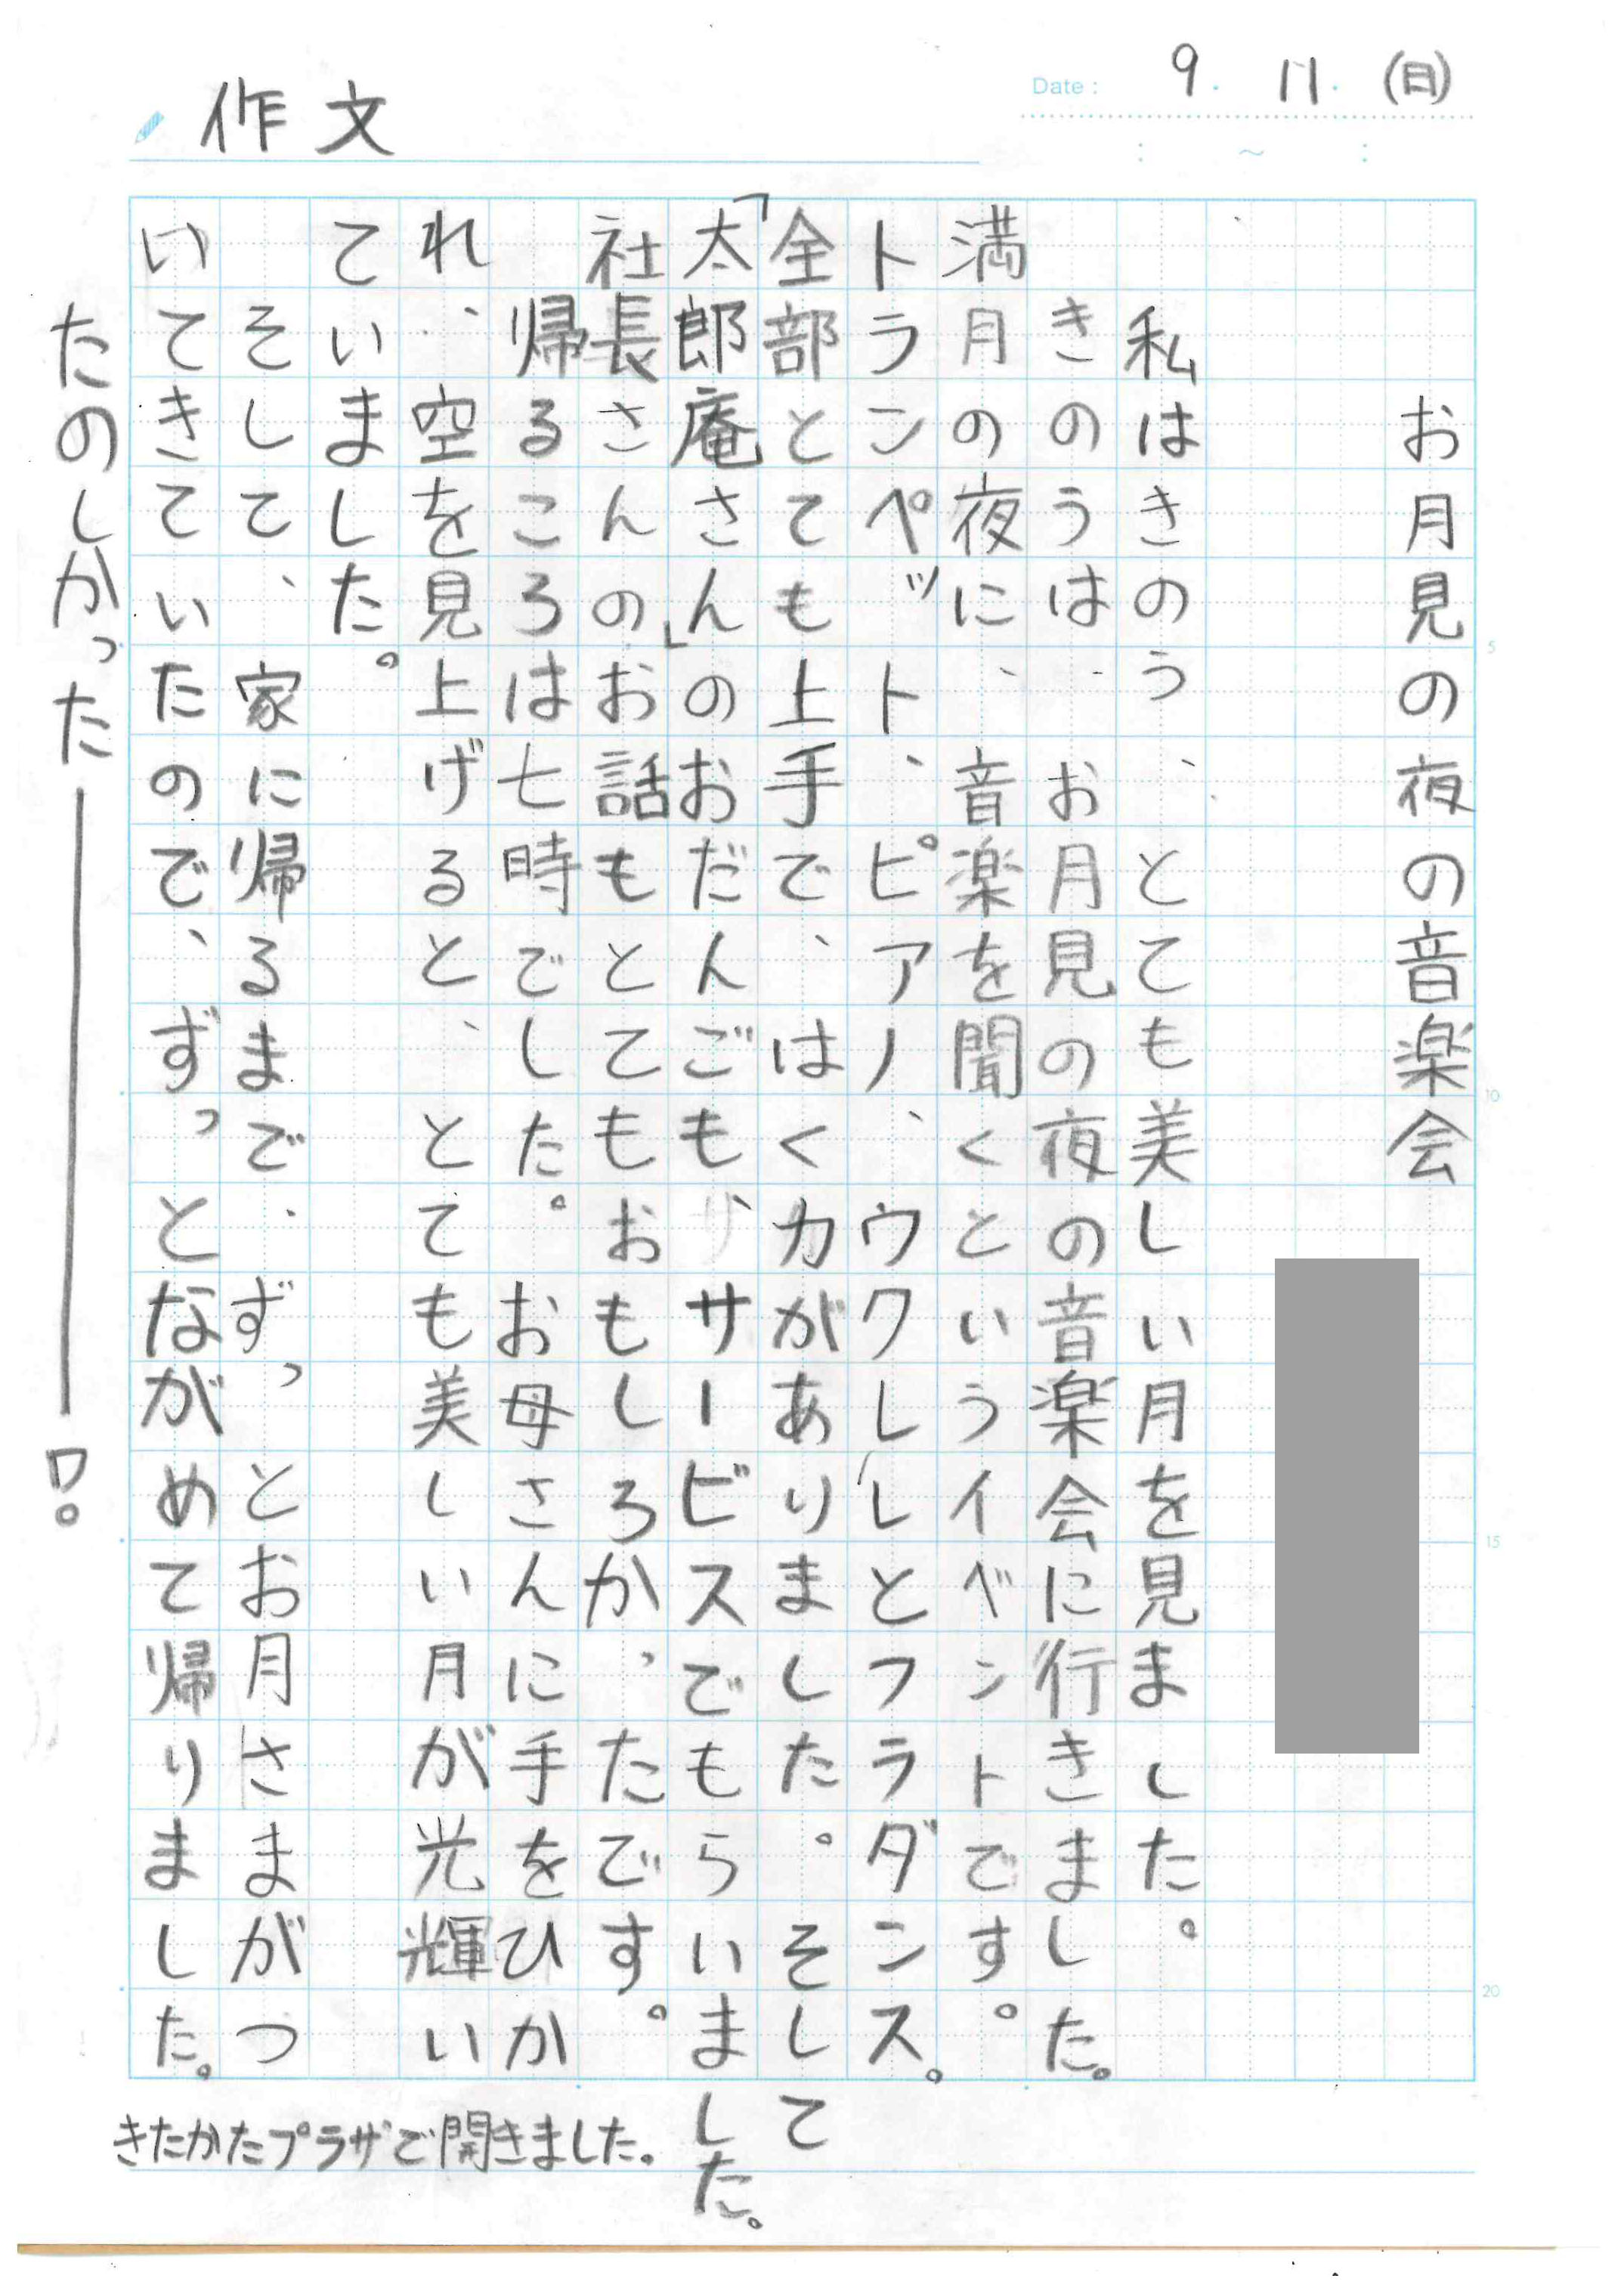 作文
Date: 9. 11. (日)
: ~ :
お月見の夜の音楽会
私はきのう、とても美しい月を見ました。
きのうは、お月見の夜の音楽会に行きました。
満月の夜に、音楽を聞くというイベントです。
トランペット、ピアノ、ウクレレとフラダンス。
全部とても上手で、はく力がありました。そして
「太郎庵さん」のおだんごもサービスでもらいました。
社長さんのお話もとてもおもしろか、たです。
帰るころは七時でした。お母さんに手をひか
れ、空を見上げると、とても美しい月が光輝い
ていました。
そして、家に帰るまで、ずっとお月さまがつ
いてきていたので、ずっとながめて帰りました。
たのしかった――!!
きたかたプラザで開きました。
5
10
15
20